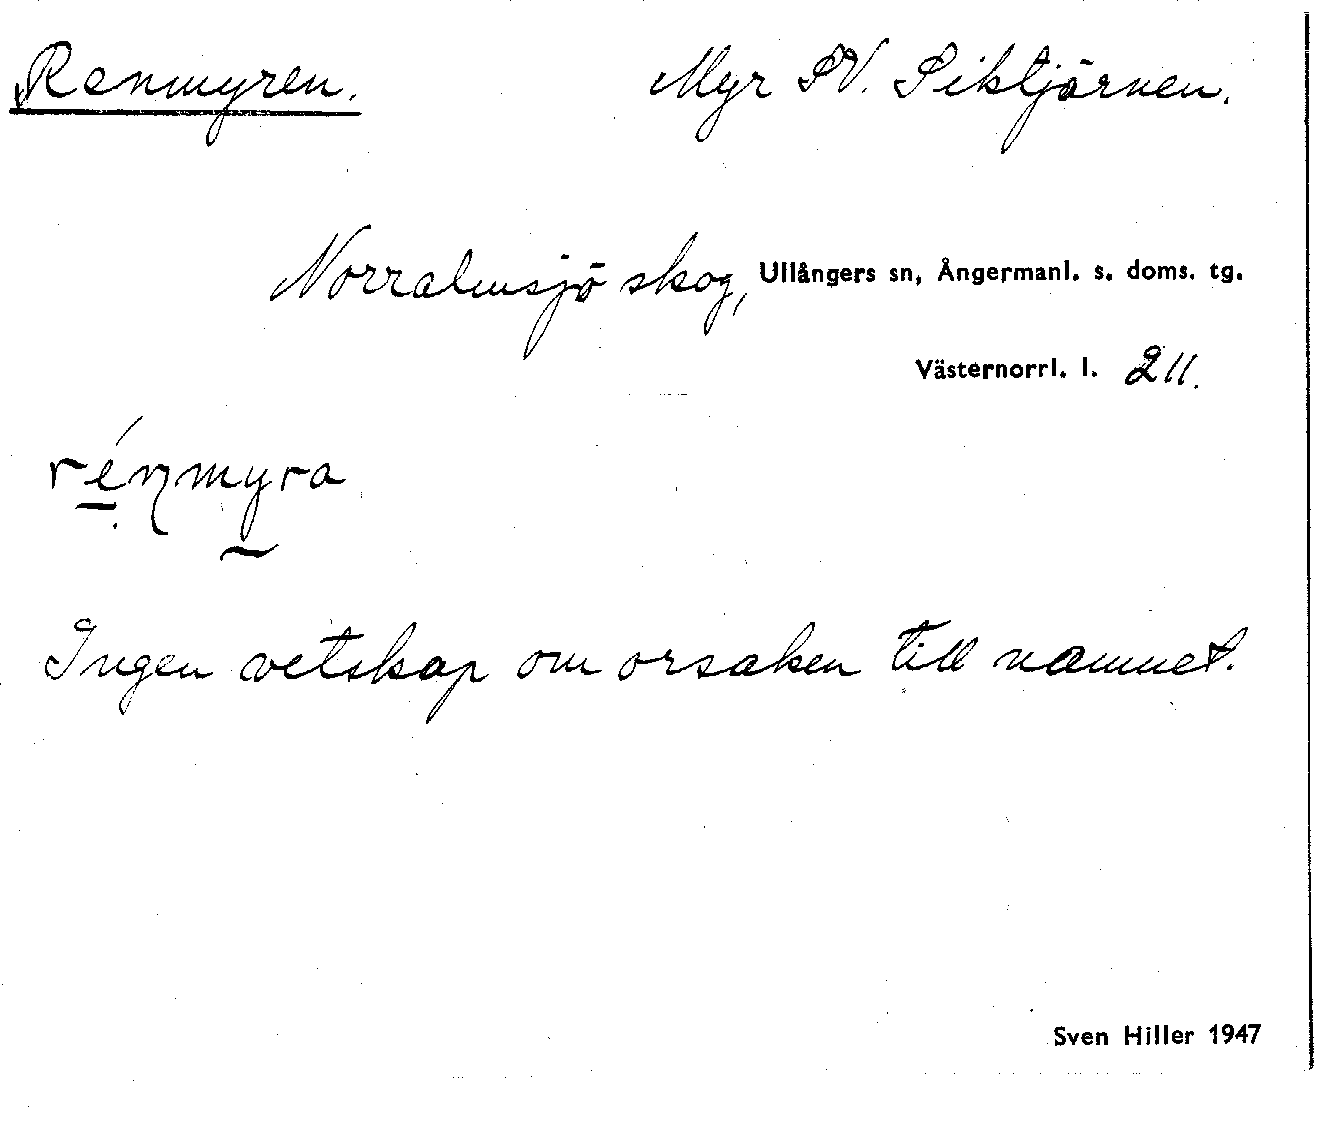 Renmyren. Myr SV. Siktjärnen.
Norralmsjö skog, Ullångers sn, Ångermanl. s. doms. tg.
Västernorrl. l. 211.
rénmyra
Ingen vetskap om orsaken till namnet.
Sven Hiller 1947